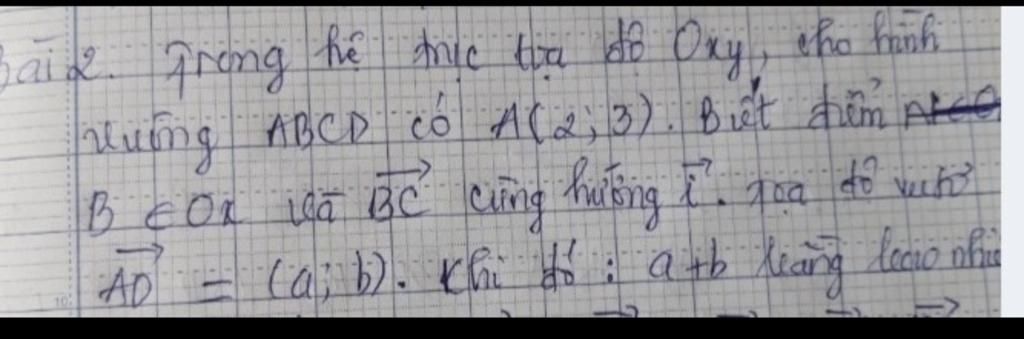 Bài 2. Trong hệ trục tọa độ Oxy, cho hình
vuông ABCD có A(2; 3). Biết điểm
B ∈ Ox và BC cùng hướng i. Tọa độ vectơ
AD = (a; b). Khi đó : a+b bằng bao nhiê